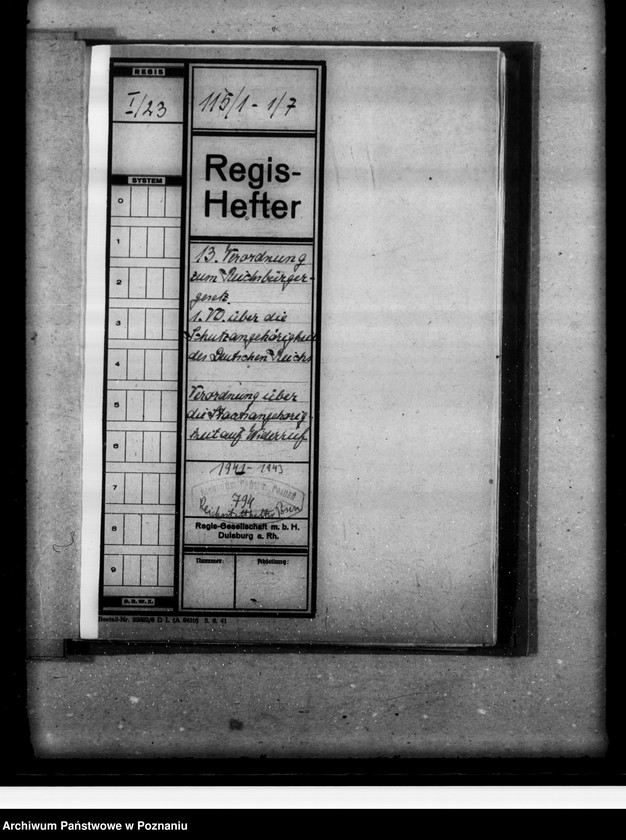 REGIS
I/23
115/1 - 1/7
Regis-
Hefter
SYSTEM
0
1
2
3
4
5
6
7
8
9
D.R.W.Z.
13. Verordnung
zum Reichsbürger-
gesetz.
1. VO. über die
Schutzangehörigkeit
des Deutschen Reichs
Verordnung über
die Staatsangehörig-
keit auf Widerruf
1941 - 1943
794
Regis-Gesellschaft m. b. H.
Duisburg a. Rh.
Nummer:
Abteilung:
Bestell-Nr.
Archiwum Państwowe w Poznaniu